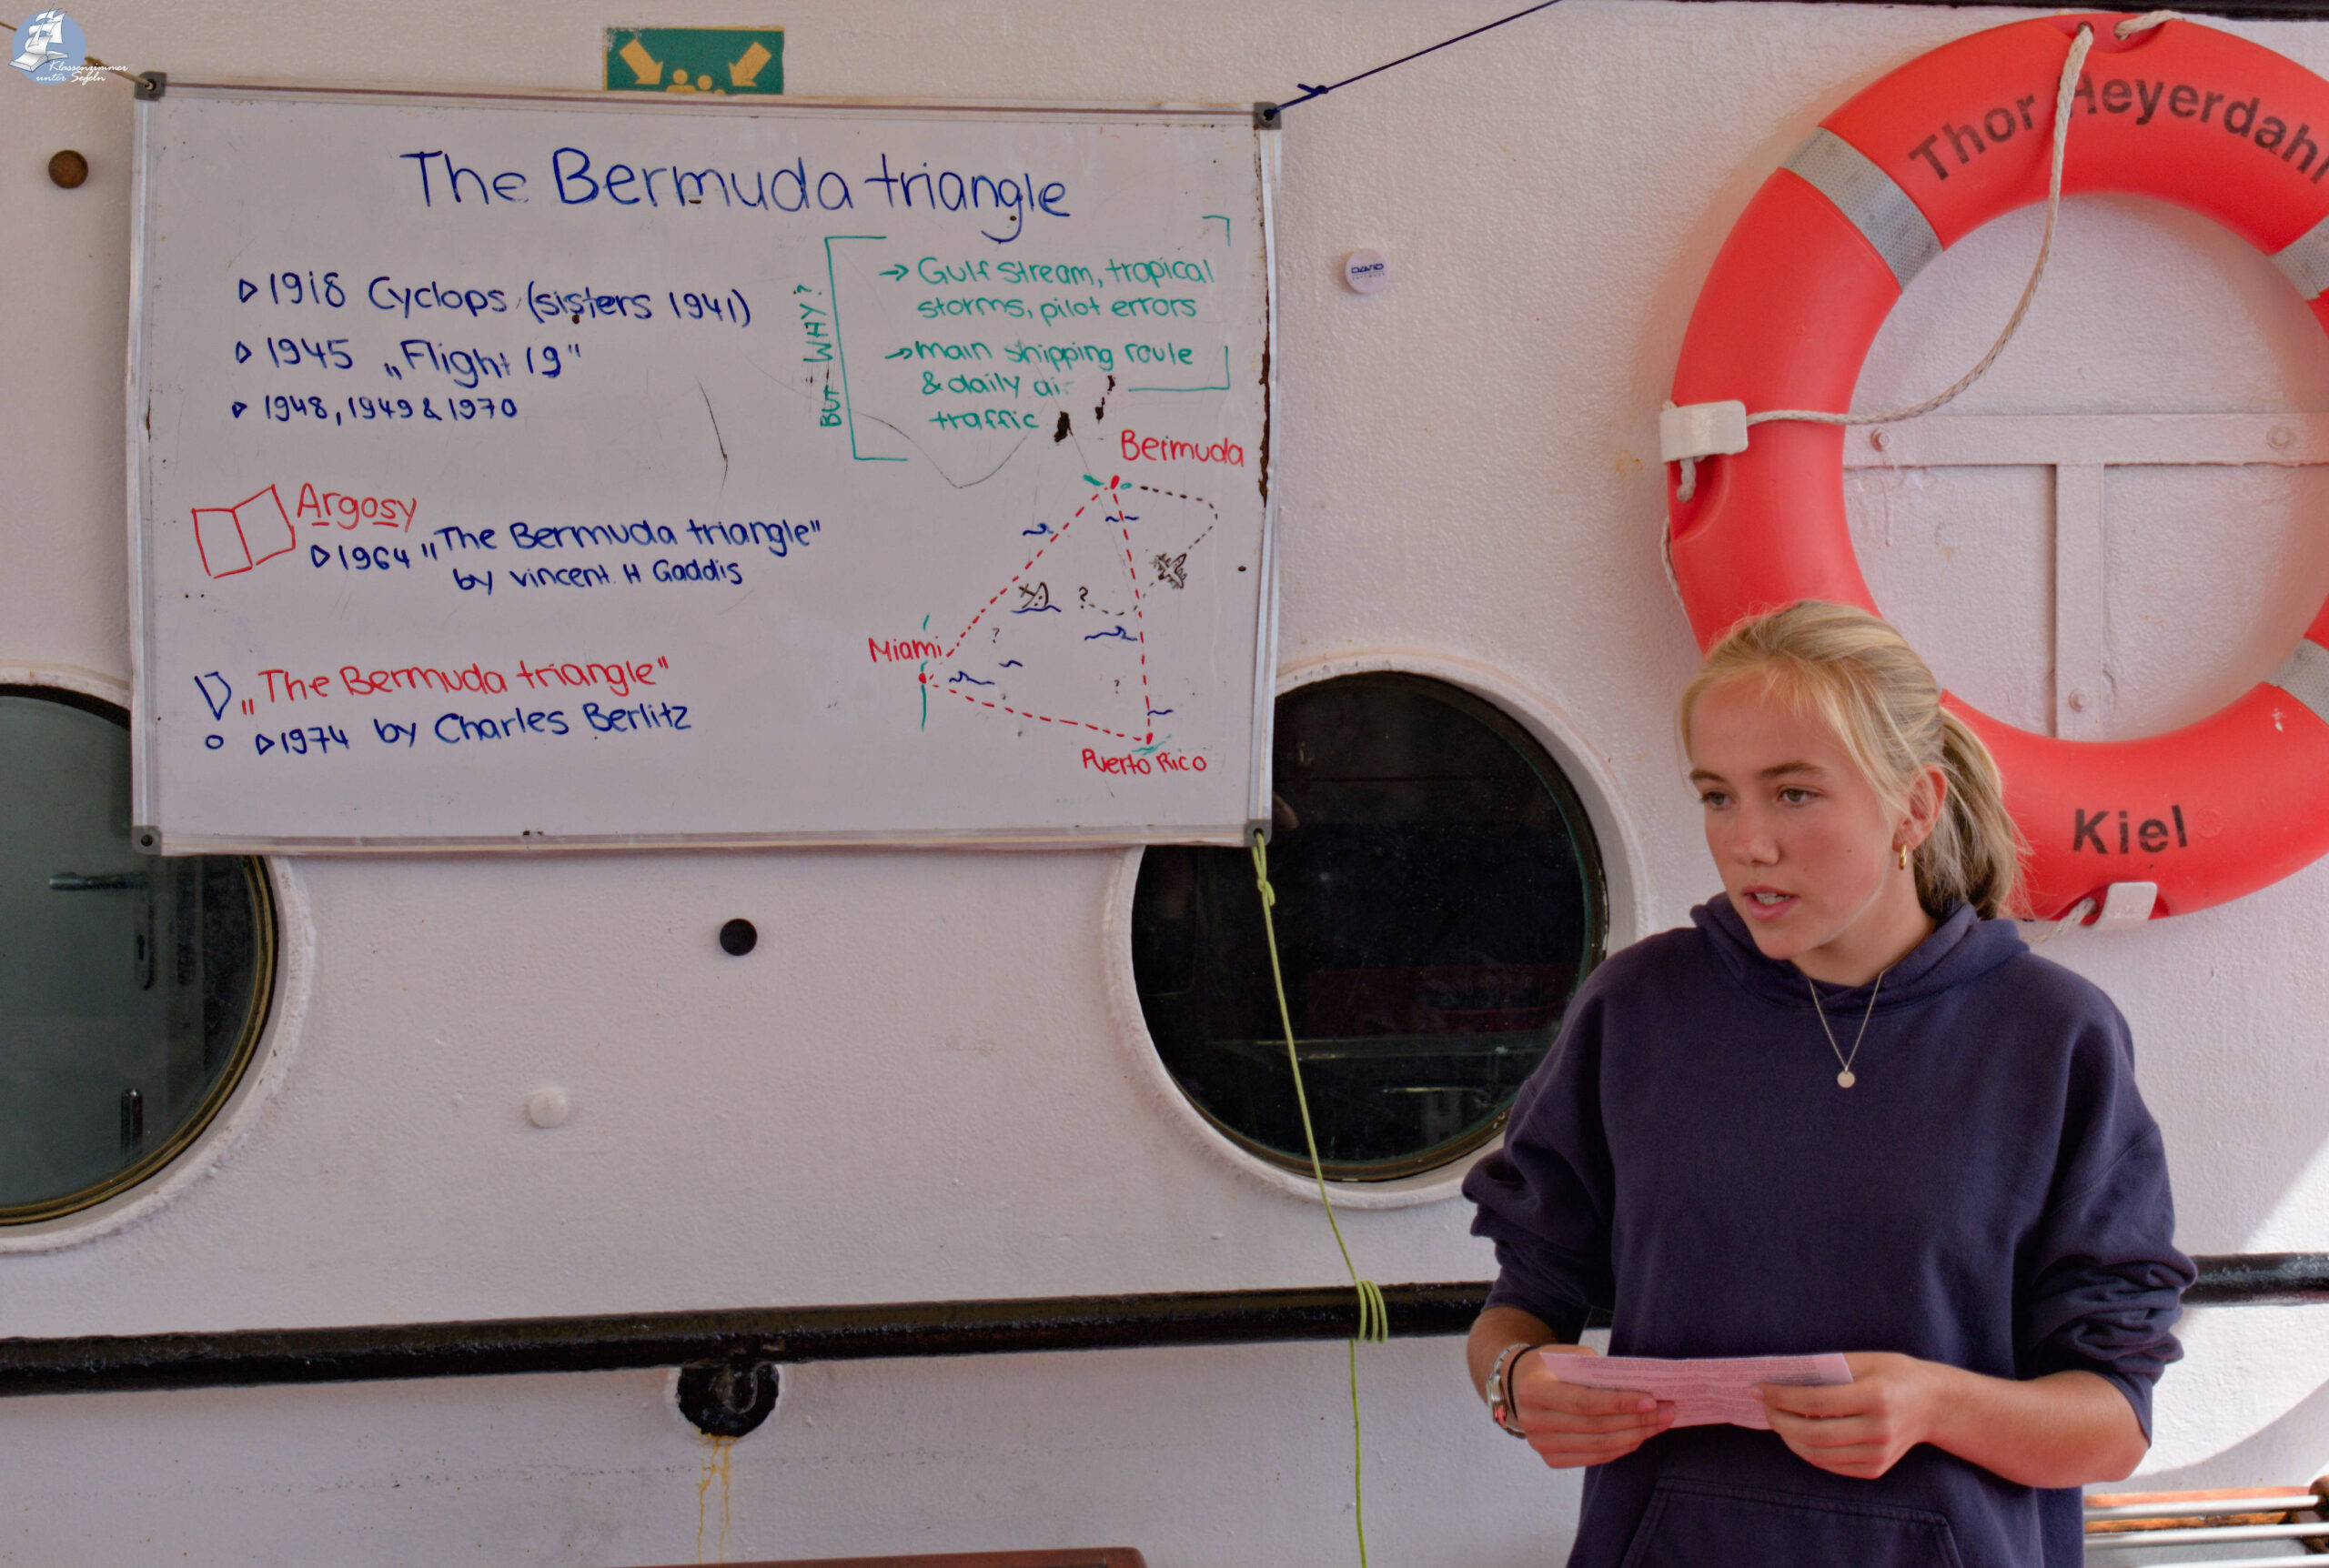 Klassenzimmer
unter Segeln
The Bermuda triangle
▷ 1918 Cyclops (sisters 1941)
▷ 1945 „Flight 19"
▷ 1948, 1949 & 1970
BUT WHY?
→ Gulf stream, tropical
storms, pilot errors
→ main shipping route
& daily air
traffic
Argosy
▷ 1964 „The Bermuda triangle"
by Vincent H Gaddis
„The Bermuda triangle"
▷ 1974 by Charles Berlitz
Bermuda
?
?
Miami
?
Puerto Rico
Thor Heyerdahl
Kiel